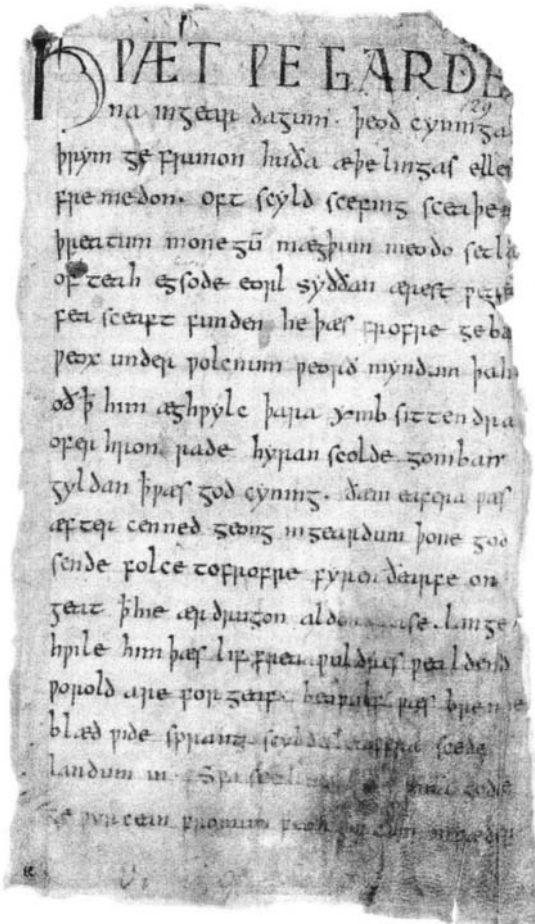 HǷÆT ǷE GARDE
na ingear dagum. þeod cyninga
þrym ge frunon huða æþelingas ellen
fremedon. oft scyld scefing sceaþen
þreatum monegū mægþum meodo setla
of teah egsode eorl syððan ærest ƿear
fea sceaft funden he þæs frofre geba
ƿeox under ƿolcnum ƿeorð myndum þah
oð ꝥ him æghƿylc þara ymb sittendra
ofer hron rade hyran scolde gomban
gyldan ꝥ ƿæs god cyning. ðæm eafera ƿæs
æfter cenned geong ingeardum þone god
sende folce tofrofre fyren ðearfe on
geat ꝥ hie ær drugon aldor ase. lange
hƿile him þæs lif frea ƿuldres ƿealdend
ƿorold are for geaf. beoƿulf ƿæs breme
blæd ƿide sprang scyldes eafera scede
landum in. Sƿa sceal guma gode
ge ƿyrcean fromum feoh giftum